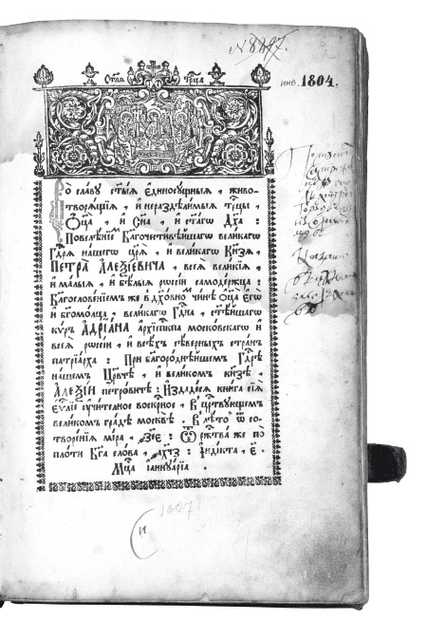 № 8897.
инв. 1804.
Ст҃аѧ Трⷪ҇ца
Во славу ст҃ыѧ єдиносущныѧ , живо-
творѧщїѧ , и нераздѣлимыѧ трⷪ҇цы ,
Ѻц҃а , и Сн҃а , и ст҃агѡ Дх҃а :
Повелѣнїемъ Благочестивѣйшагѡ великагѡ
Гдⷭ҇рѧ нашегѡ цр҃ѧ , и великагѡ Кн҃зѧ ,
ПЕТРА АЛЕѮІЕВИЧА , всеѧ великїѧ ,
и малыѧ , и бѣлыѧ рѡссїи самодержца :
Благословенїемъ же в дх҃овнѡ чинѣ Ѻц҃а Єгѡ
и бг҃омолца , великагѡ Гдⷭ҇на , ст҃ѣйшагѡ
кѵръ АДРІАНА архїєпⷭ҇кпа московскагѡ и
всеѧ рѡссїи , и всѣхъ сѣверныхъ странъ
патрїарха : При благороднѣйшемъ Гдⷭ҇рѣ
нашемъ Цр҃вчѣ , и великомъ кн҃зѣ ,
АЛЕѮІИ петровичѣ : Издадесѧ книга сїѧ
Єѵⷢ҇лїе учителное воскрⷭ҇ное , В црⷭ҇твующемъ
великомъ градѣ москвѣ . В лѣто ѿ со-
творенїѧ мїра , ҂зсє : Ѿ ржⷭ҇тва же по
плоти Бг҃а слова , ҂ахчз : індїкта , є .
Мцⷭ҇а іаннуарїа .
1697